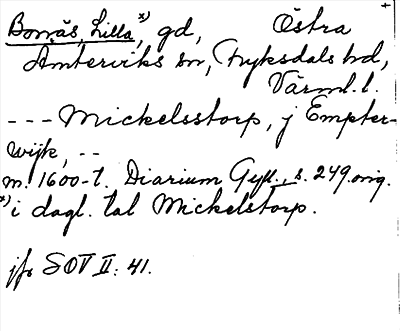 Borrås, Lilla *), gd, Östra +
Ämterviks sn, Fryksdals hd,
Värml. l.
--- Mickelsstorp, j Empter-
wijk, --
m. 1600-t. Diarium Gyll., s. 249 orig.
*) i dagl. tal Mickelstorp.
jfr SOV II: 41.